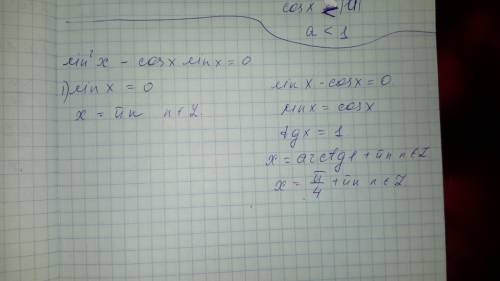 cosx < |u|
a < 1
sin²x - cosx sinx = 0
1) sinx = 0
x = πn n ∈ Z.
sinx - cosx = 0
sinx = cosx
tgx = 1
x = arctg1 + πn n ∈ Z
x = π/4 + πn n ∈ Z